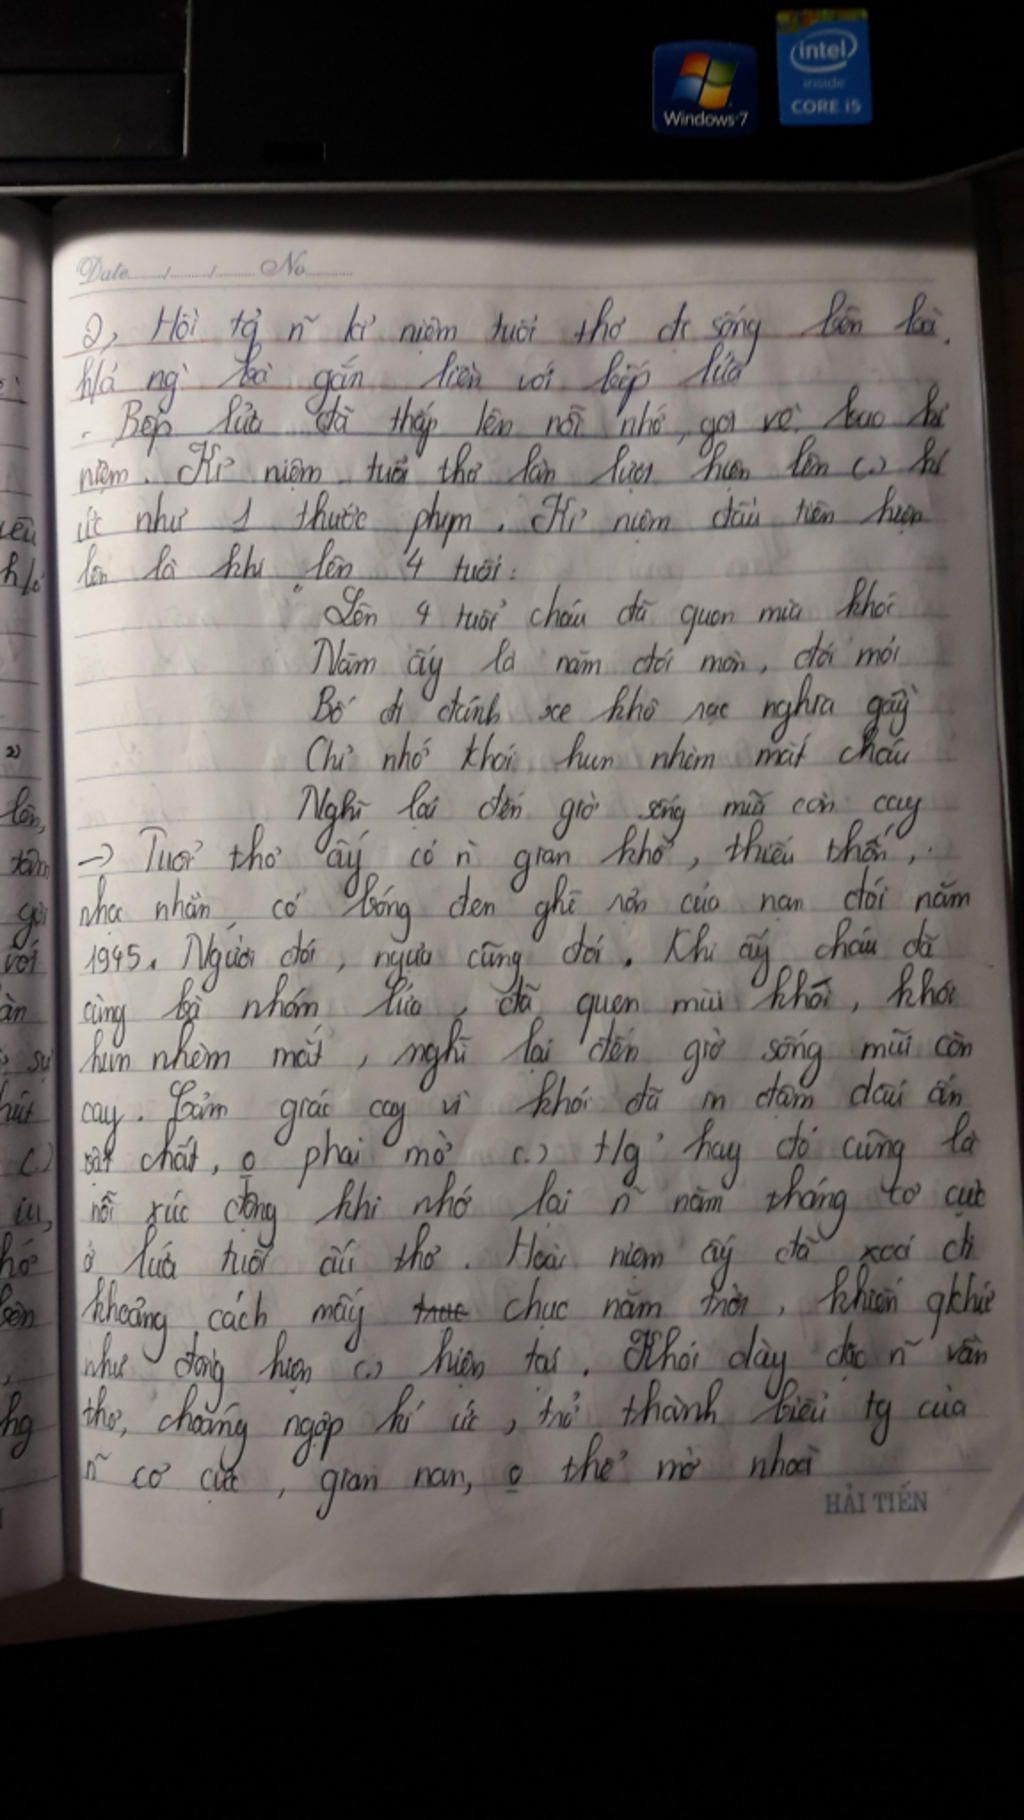 intel
inside
CORE i5
Windows 7
Date...../....../...... No.......
2, Hồi tg n~ kỉ niệm tuổi thơ đc sống bên bà,
h/á ng` bà gắn liền với bếp lửa
- Bếp lửa đã thắp lên nỗi nhớ, gợi về bao kỉ
niệm. Kỉ niệm tuổi thơ lần lượt hiện lên (.) kí
ức như 1 thước phim. Kỉ niệm đầu tiên hiện
lên là khi lên 4 tuổi:
"Lên 4 tuổi cháu đã quen mùi khói
Năm ấy là năm đói mòn, đói mỏi
Bố đi đánh xe khô rạc ngựa gầy
Chỉ nhớ khói hun nhèm mắt cháu
Nghĩ lại đến giờ sống mũi còn cay
-> Tuổi thơ ấy có n~ gian khổ, thiếu thốn,
nhọc nhằn, có bóng đen ghê rợn của nạn đói năm
1945. Người đói, ngựa cũng đói. Khi ấy cháu đã
cùng bà nhóm lửa, đã quen mùi khói, khói
hun nhèm mắt, nghĩ lại đến giờ sống mũi còn
cay. Cảm giác cay vì khói đã in đậm dấu ấn
vật chất, o phai mờ (.) t/g hay đó cũng là
nỗi xúc động khi nhớ lại n~ năm tháng cơ cực
ở lứa tuổi ấu thơ. Hoài niệm ấy đã xoá đi
khoảng cách mấy chục năm trời, khiến qkhứ
như đang hiện (.) hiện tại. Khói dày đặc n~ vần
thơ, choáng ngợp kí ức, trở thành biểu tg của
n~ cơ cực, gian nan, o thể mờ nhoà
HẢI TIẾN
yêu
h/ả
2)
lên,
tâm
gửi
với
àn
sự
hút
(.)
iu,
hớ
bên
,
hg